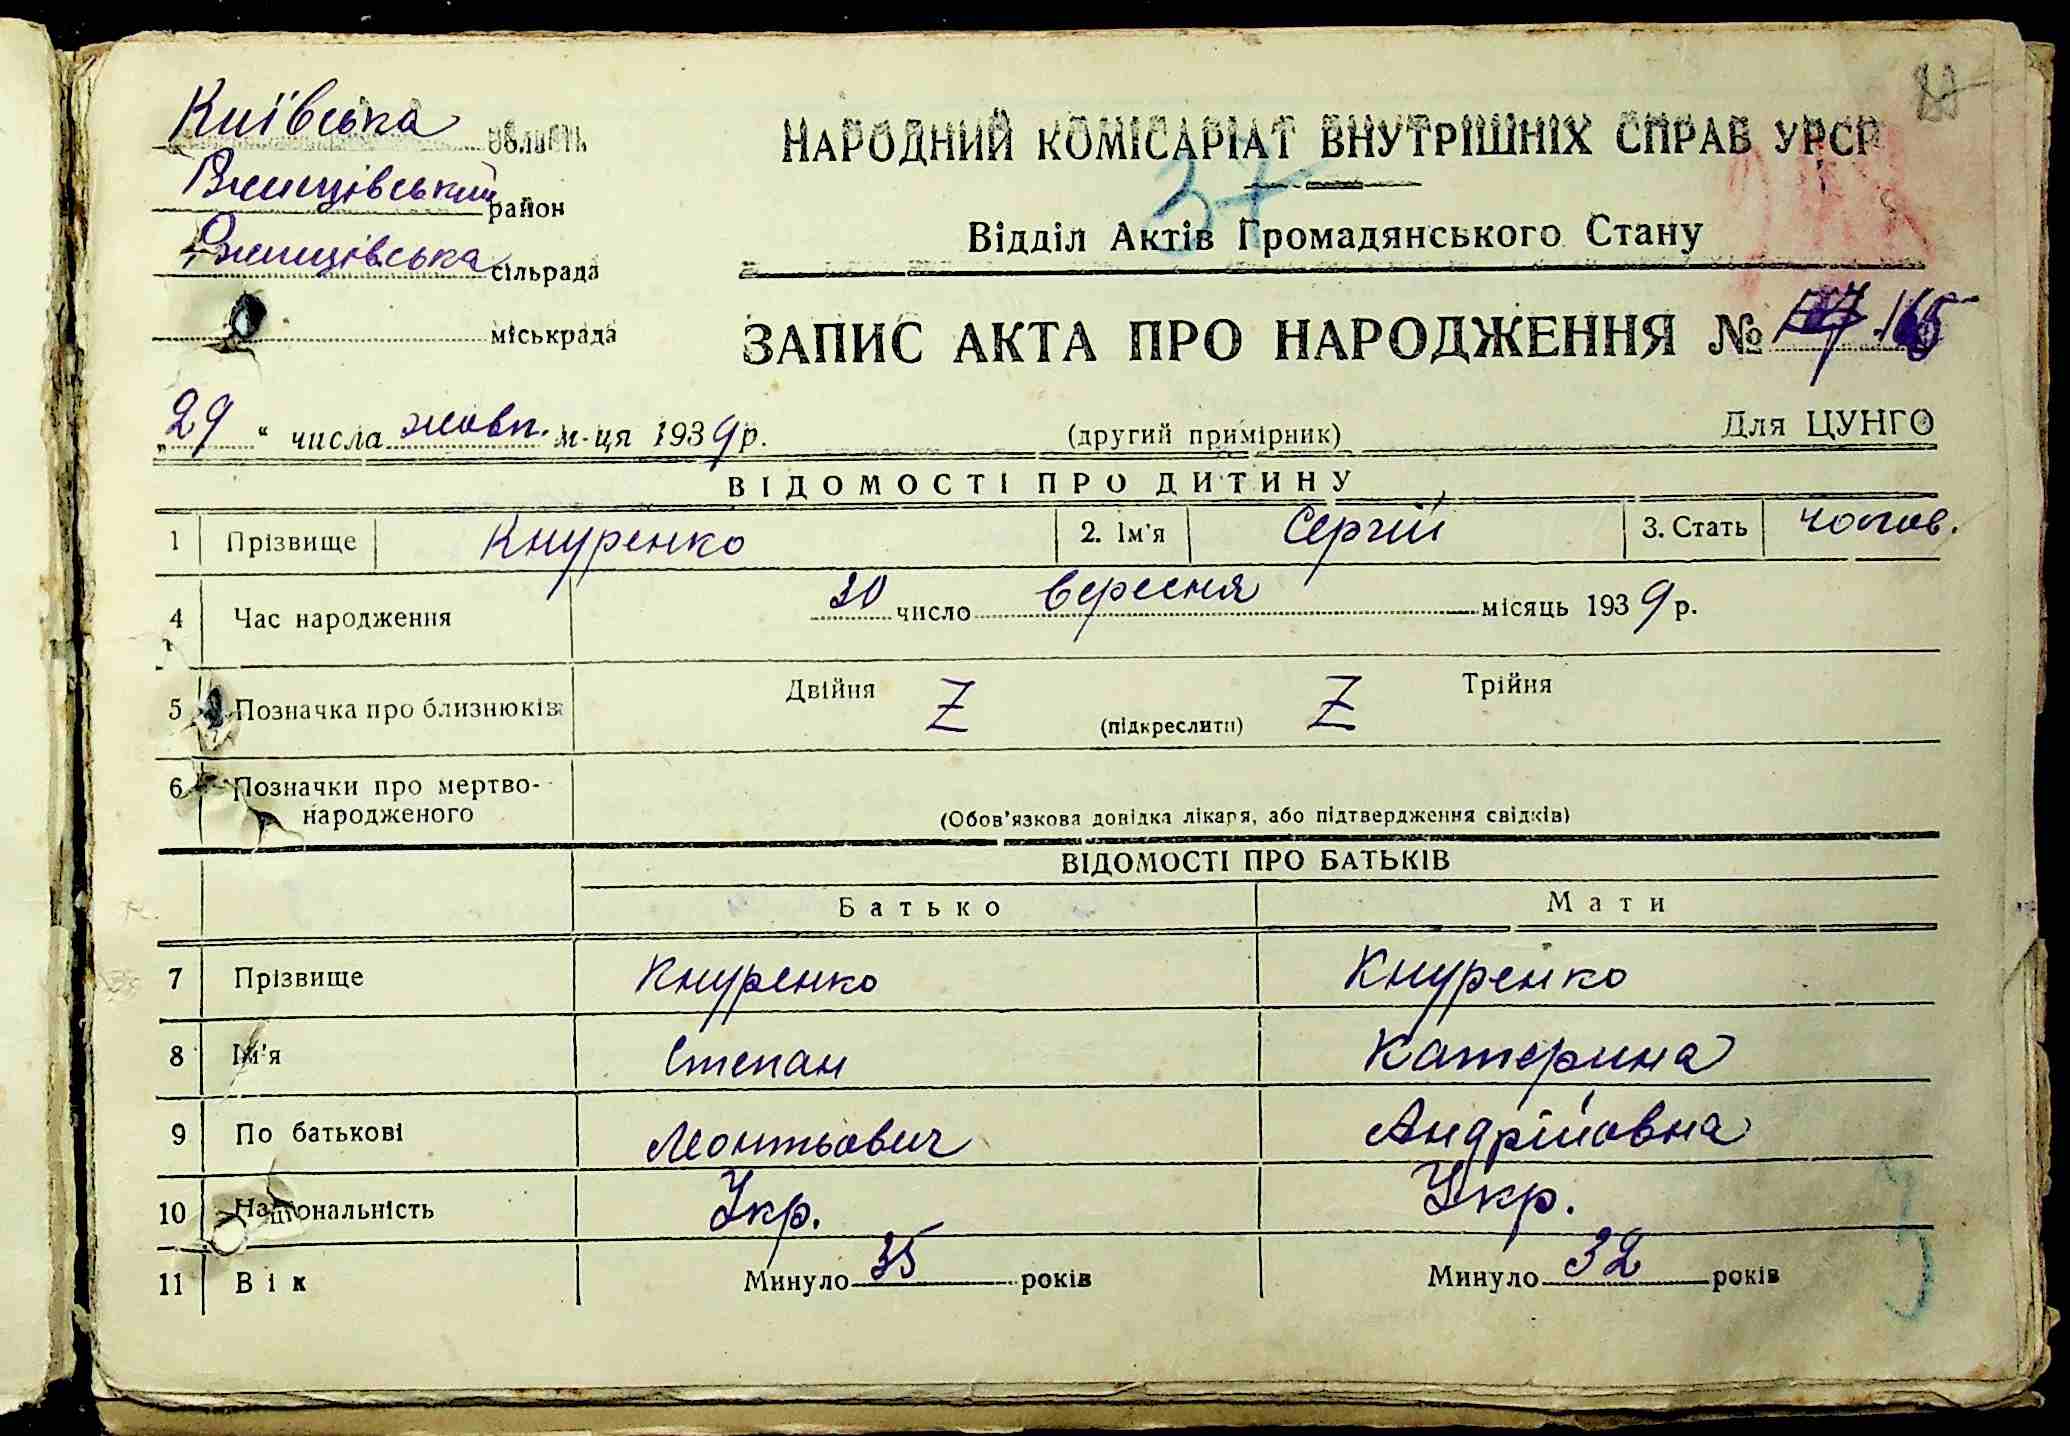 Київська область
Ржищівський район
Ржищівська сільрада
міськрада
НАРОДНИЙ КОМІСАРІАТ ВНУТРІШНІХ СПРАВ УРСР
37
Відділ Актів Громадянського Стану
ЗАПИС АКТА ПРО НАРОДЖЕННЯ № 165
„29“ числа жовт. м-ця 1939 р.
(другий примірник)
Для ЦУНГО
ВІДОМОСТІ ПРО ДИТИНУ
1 Прізвище Кнуренко 2. Ім'я Сергій 3. Стать чолов.
4 Час народження 30 число вересня місяць 1939 р.
5 Позначка про близнюків Двійня Z (підкреслити) Z Трійня
6 Позначки про мертво-
народженого
(Обов'язкова довідка лікаря, або підтвердження свідків)
ВІДОМОСТІ ПРО БАТЬКІВ
Батько Мати
7 Прізвище Кнуренко Кнуренко
8 Ім'я Степан Катерина
9 По батькові Леонтьович Андрійовна
10 Національність Укр. Укр.
11 Вік Минуло 35 років Минуло 32 років